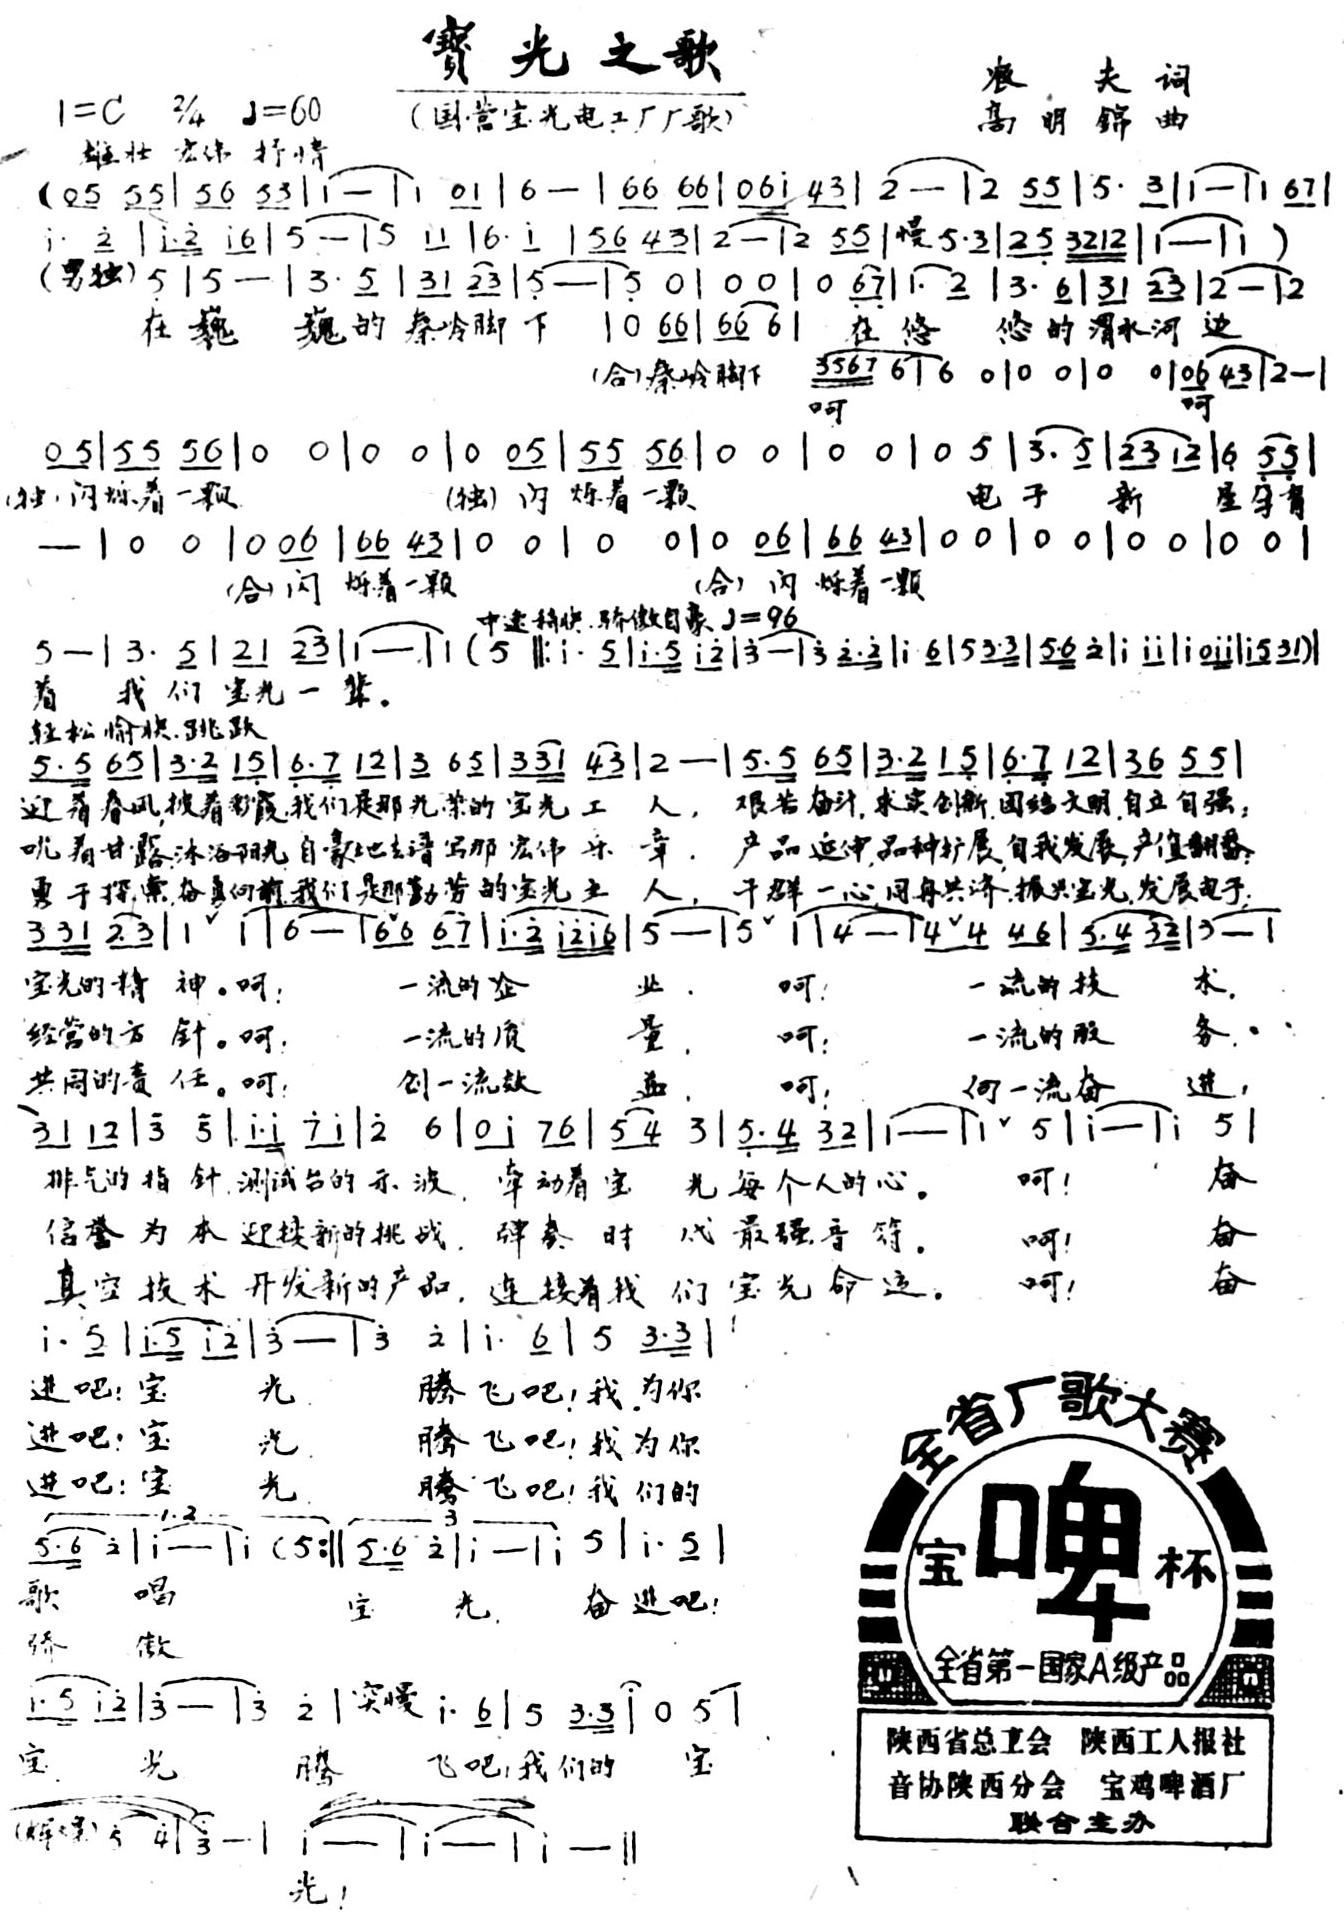 寳光之歌
(国营宝光电工厂厂歌)
农夫 词
高明錦 曲
1=C 2/4 ♩=60
雄壮 宏伟 抒情
(05 55|56 53|i—|i 01|6—|66 66|06i 43|2—|2 55|5· 3|1—|1 67|
i· 2|i·2 i6|5—|5 ii|6· i|56 43|2—|2 55|慢 5·3|25 3212|1—|1)
(男独) 5|5—|3· 5|31 23|5—|5 0|0 0|0 67|1· 2|3· 6|31 23|2—|2
在巍 巍的秦岭脚下 在悠 悠的渭水河边
|0 66|66 6|
(合)秦岭脚下
3567 6|6 0|0 0|0 0|06 43|2—|
呵 呵
05|55 56|0 0|0 0|0 05|55 56|0 0|0 0|0 5|3· 5|23 12|6 55|
(独)闪烁着一颗 (独)闪烁着一颗 电子 新 星孕育
—|0 0|0 06|66 43|0 0|0 0|0 06|66 43|0 0|0 0|0 0|0 0|
(合)闪烁着一颗 (合)闪烁着一颗
中速稍快.骄傲自豪 ♩=96
5—|3· 5|21 23|1—|1 (5‖:i· 5|i·5 i2|3—|3 2·2|i 6|5 3·3|5·6 2|i ii|i 0ii|i531)|
着 我们宝光一辈。
轻松愉快.跳跃
5·5 65|3·2 15|6·7 12|3 65|331 43|2—|5·5 65|3·2 15|6·7 12|36 55|
迎着春风,披着彩霞,我们是那光荣的宝光工 人, 艰苦奋斗,求实创新,团结文明,自立自强;
吮着甘露,沐浴阳光,自豪地去谱写那宏伟乐 章. 产品延伸,品种扩展,自我发展,产值翻番;
勇于探索,奋勇向前,我们是那勤劳的宝光工 人, 干群一心,同舟共济,振兴宝光,发展电子;
331 23|1 i|6—|66 67|i·2 i2i6|5—|5 i|4—|4 4 46|5·4 32|3—|
宝光的精 神。呵! 一流的企 业. 呵! 一流的技 术,
经营的方 针。呵! 一流的质 量, 呵! 一流的服 务.
共同的责 任。呵! 创一流效 益, 呵! 向一流奋 进!
31 12|3 5|i·i 7i|2 6|0i 76|54 3|5·4 32|1—|1 5|i—|i 5|
排气的指针,测试台的示波, 牵动着宝 光每个人的心。 呵! 奋
信誉为本,迎接新的挑战, 弹奏时 代最强音符. 呵! 奋
真空技术,开发新的产品, 连接着我 们宝光命运. 呵! 奋
i· 5|i·5 i2|3—|3 2|i· 6|5 3·3|
进吧!宝 光. 腾飞吧!我为你
进吧!宝 光. 腾飞吧!我为你
进吧!宝 光. 腾飞吧!我们的
1.2 3
5·6 2|i—|i (5:‖5·6 2|i—|i 5|i· 5|
歌 唱 宝 光. 奋进吧!
骄 傲
i·5 i2|3—|3 2|突慢 i· 6|5 3·3|0 5|
宝 光 腾 飞吧!我们的 宝
(辉煌) 5 4|3—|i—|i—|i—‖
光!
全省厂歌大赛
宝啤杯
全省第一国家A级产品
陕西省总工会 陕西工人报社
音协陕西分会 宝鸡啤酒厂
联合主办